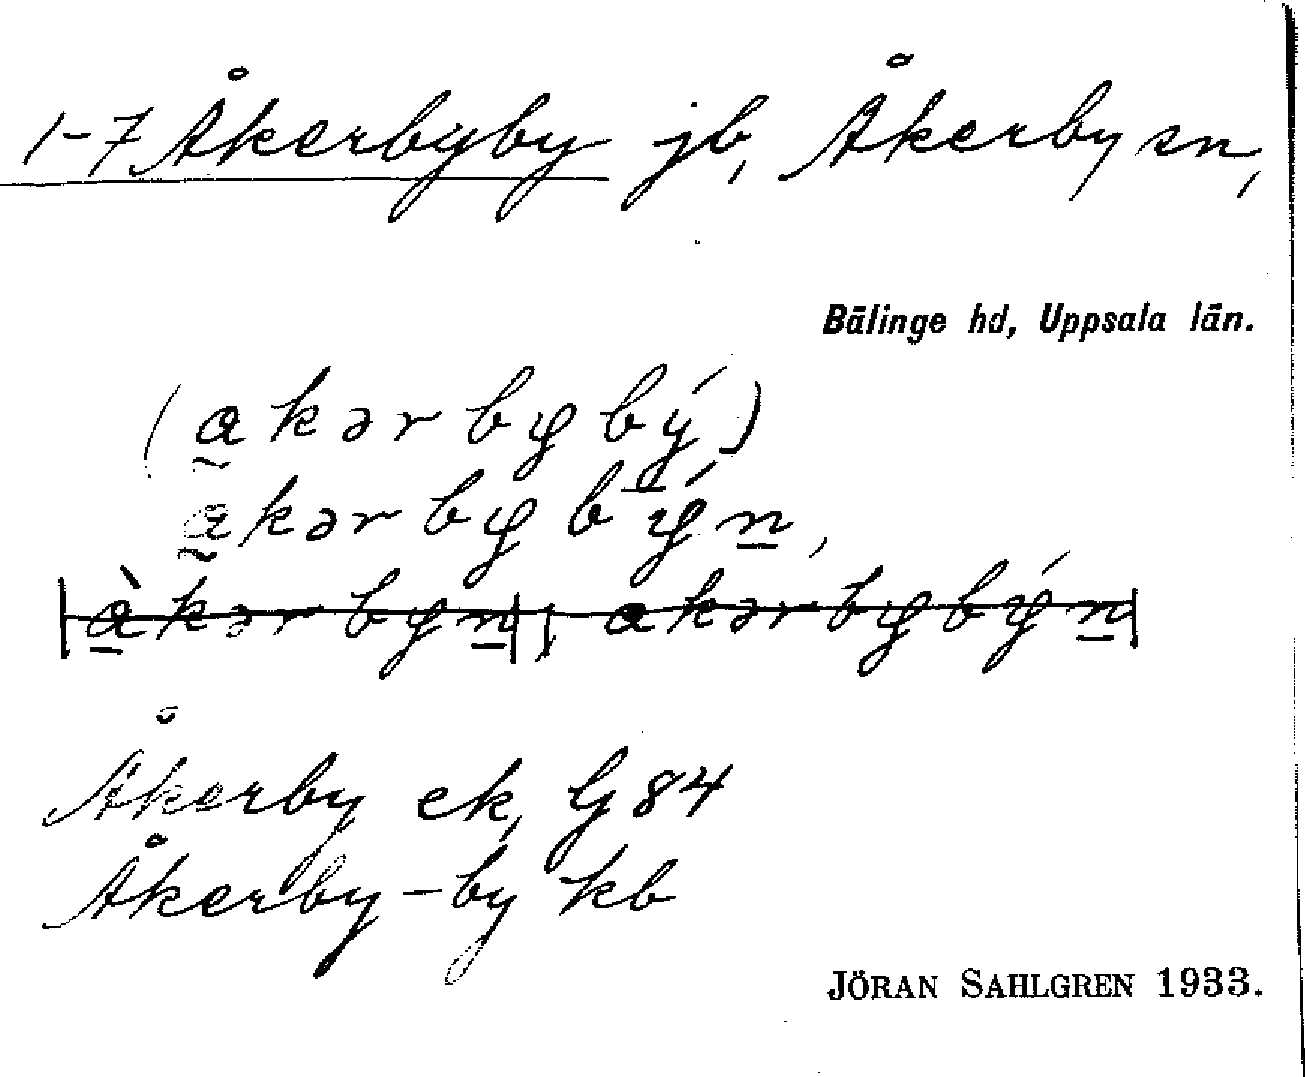 1-7 Åkerbyby jb, Åkerby sn,
Bälinge hd, Uppsala län.
(a̰kərbybý)
a̰kərbybýn̲,
à̲kərbyn̲, akərbybýn̲
Åkerby ek, G 84
Åkerby-by kb
JÖRAN SAHLGREN 1933.